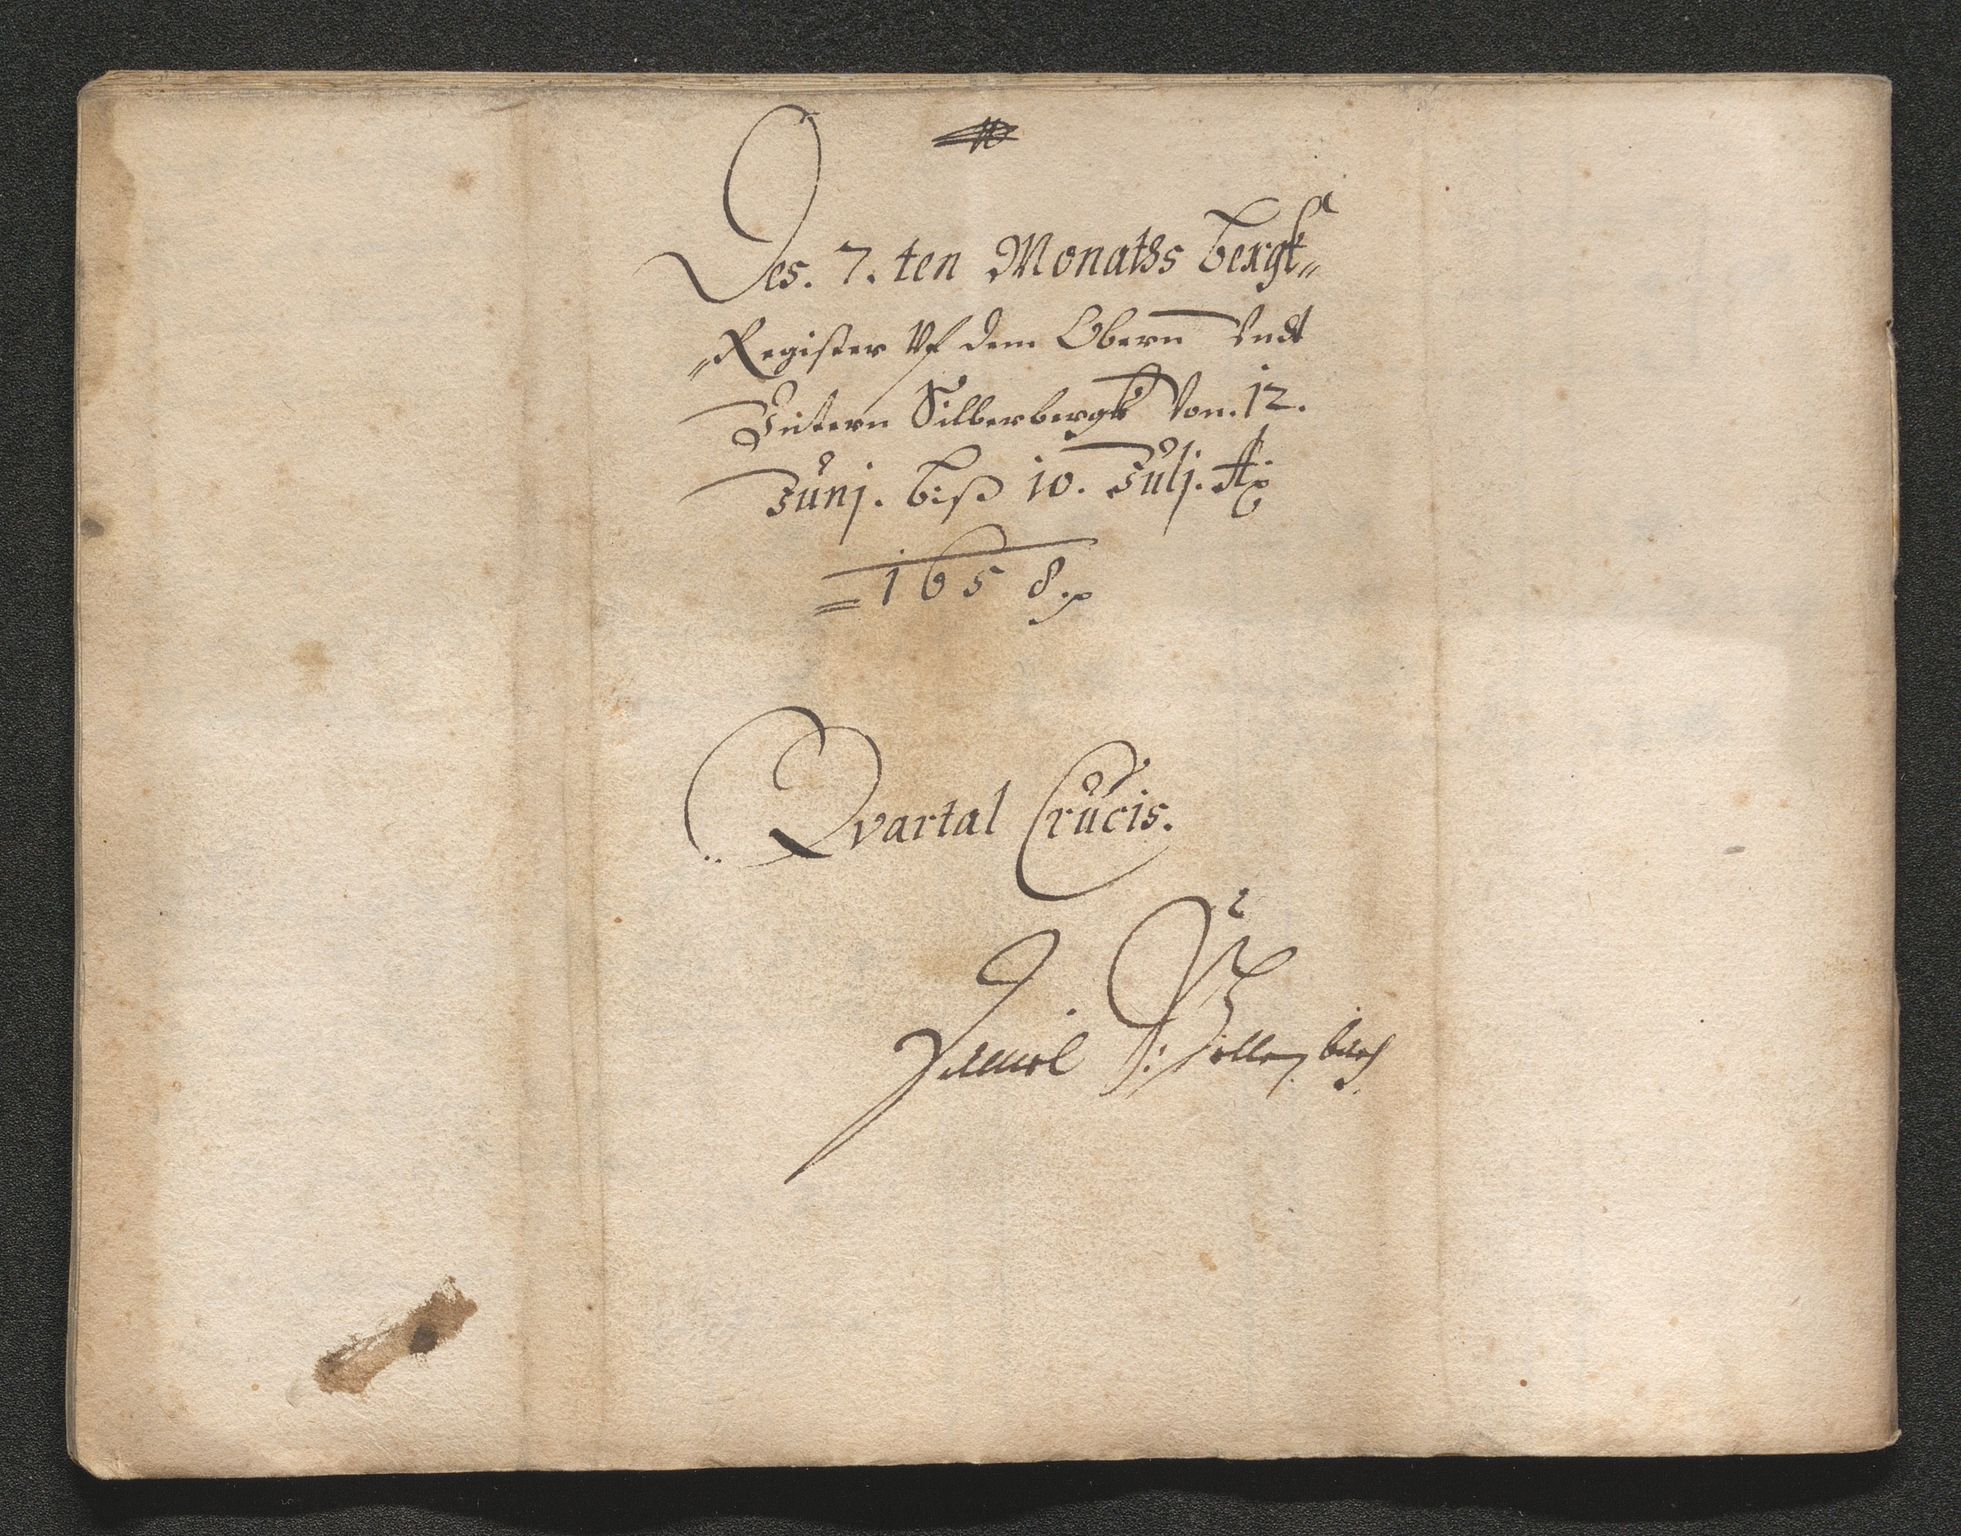 Des. 7. ten Monaths bergk„
„Register Vf dem Obern Vndt
Vntern Silberbergk Von. 12.
Junj. biß 10. Julj. Aō
1658.
Qvartal Crucis.